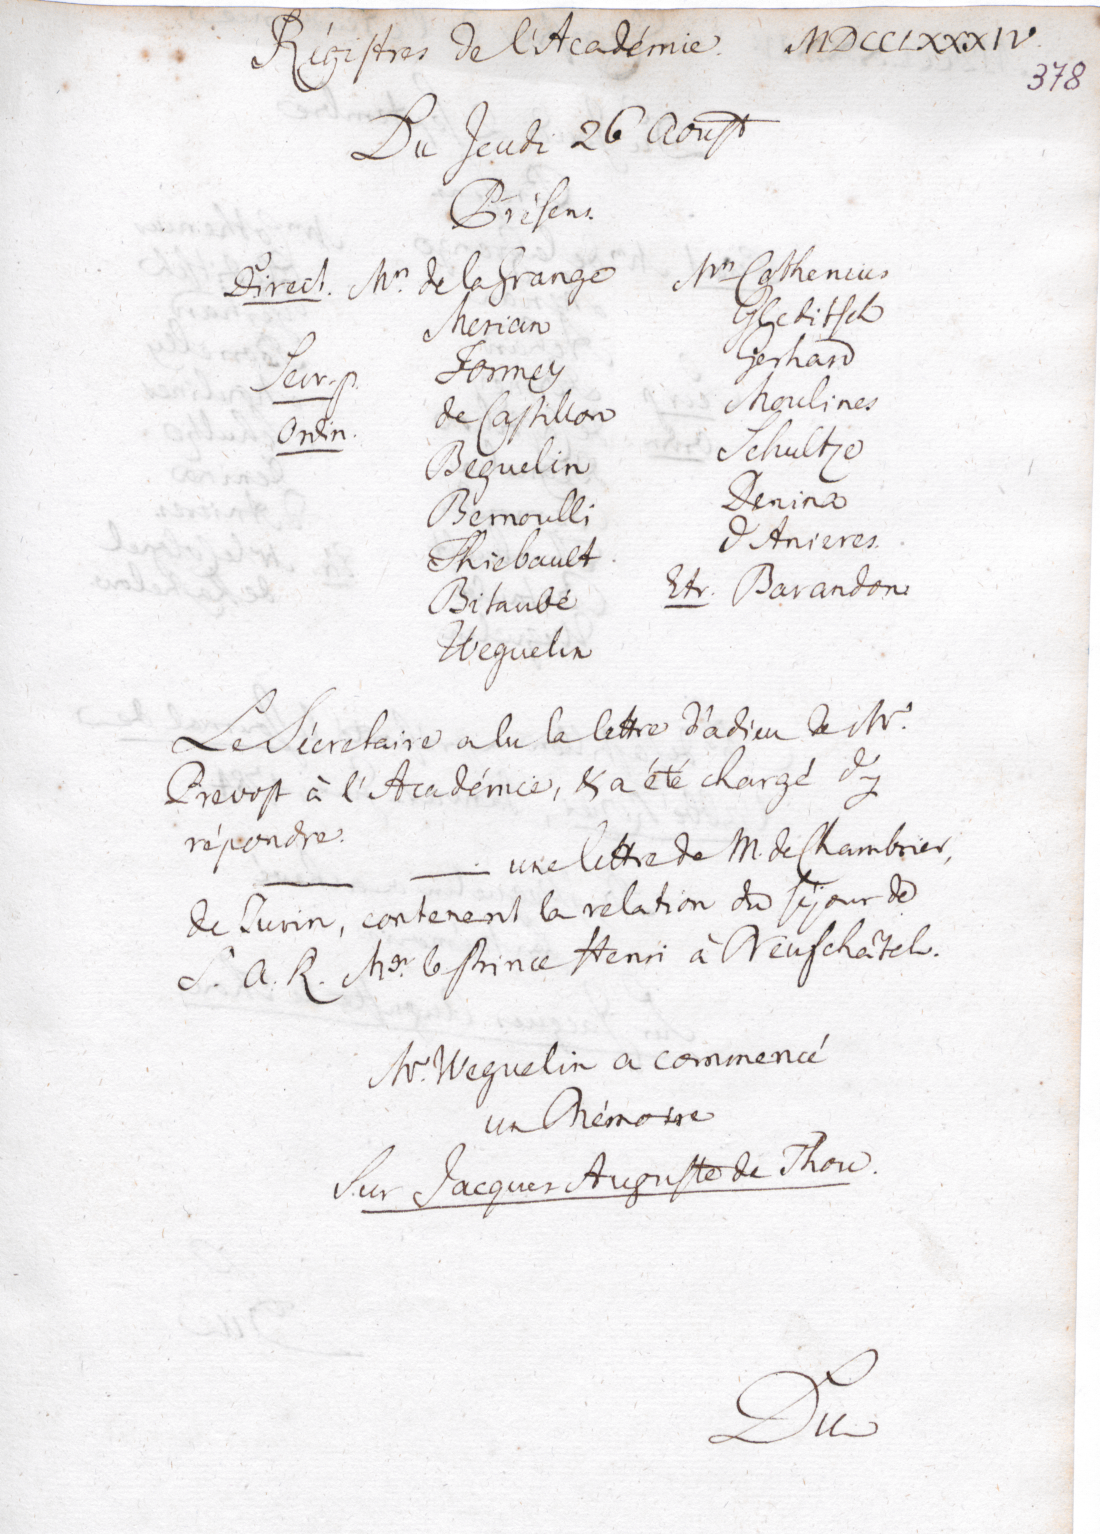 Régistres de l'Académie. MDCCLXXXIV.
378
Du Jeudi 26 Aoust
Présens.
Direct. Mrs. de la Grange
Merian
Secr. p. Formey
Ordin. de Castillon
Beguelin
Bernoulli
Thiebault.
Bitaubé
Weguelin
Mrs Cothenius
Gleditsch
Gerhard
Moulines
Schultze
Denina
d'Anieres.
Etr. Barandon
Le Sécretaire a lu la lettre d'adieu de Mr.
Prevost à l'Académie, & a été chargé d'y
répondre.
—— —— une lettre de M. de Chambrier,
de Turin, contenent la rélation du séjour de
S. A. R. Mgr. le Prince Henri à Neufchâtel.
Mr. Weguelin a commencé
un Mémoire
Sur Jacques Auguste de Thou.
Du